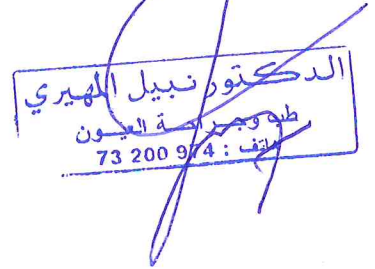 الدكتور نبيل المهيري
طب وجراحة العيون
هاتف : 974 200 73